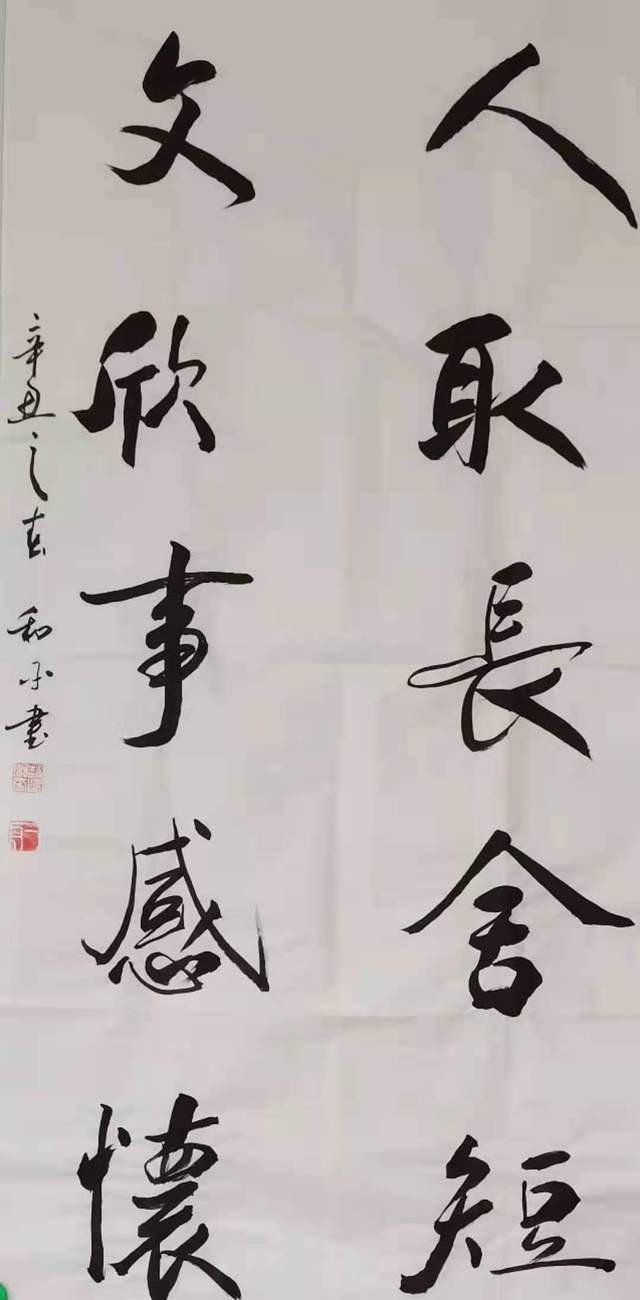 人取長舍短
文欣事感懷
辛丑之春 和平書